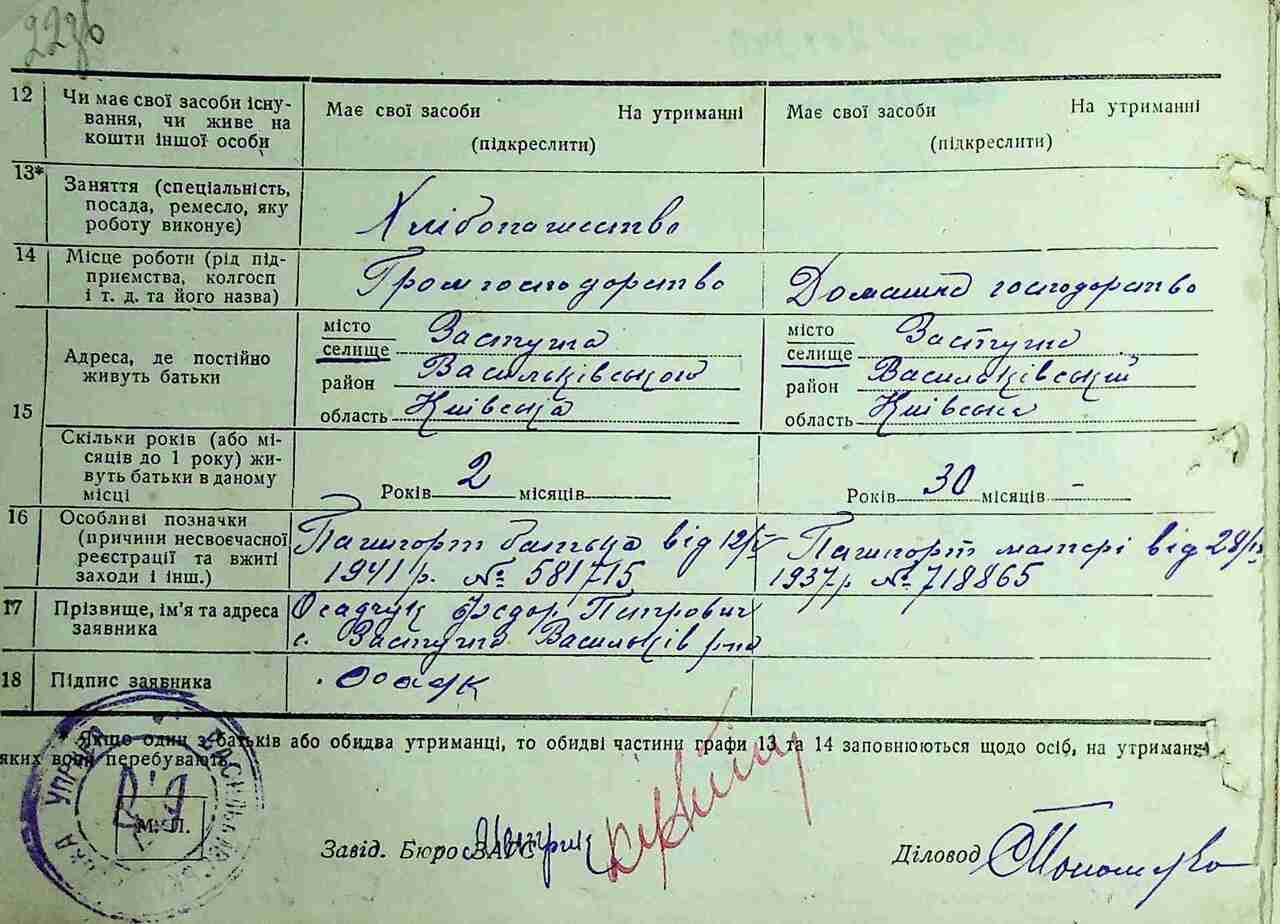 223б
12 Чи має свої засоби існу-
вання, чи живе на
кошти іншої особи
Має свої засоби На утриманні
(підкреслити)
Має свої засоби На утриманні
(підкреслити)
13* Заняття (спеціальність,
посада, ремесло, яку
роботу виконує)
Хлібопашество
14 Місце роботи (рід під-
приємства, колгосп
і т. д. та його назва)
Громгосподорство
Домашнє господорство
15 Адреса, де постійно
живуть батьки
місто
селище Застуга
район Васильківського
область Київська
місто
селище Застуга
район Васильківський
область Київська
Скільки років (або мі-
сяців до 1 року) жи-
вуть батьки в даному
місці
Років 2 місяців
Років 30 місяців -
16 Особливі позначки
(причини несвоєчасної
реєстрації та вжиті
заходи і інш.)
Пашпорт батька від
1941 р. № 581715
Пашпорт матері від
1937 р № 718865
17 Прізвище, ім'я та адреса
заявника
Осадчук Федор Питрович
с. Застуга Васильків р-на
18 Підпис заявника
Осадч
Якщо один з батьків або обидва утриманці, то обидві частини графи 13 та 14 заповнюються щодо осіб, на утриманні
яких вони перебувають.
УПРАВА
М. П.
Завід. Бюро ЗАГС
Діловод